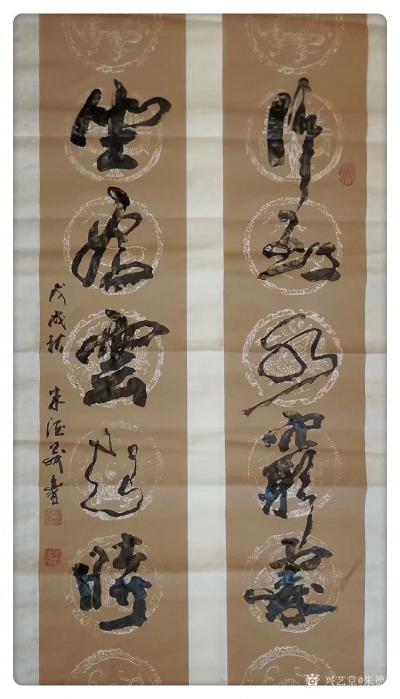 行到水窮處
坐看雲起時
戊戌秋 朱德 書
兴艺堂@朱德